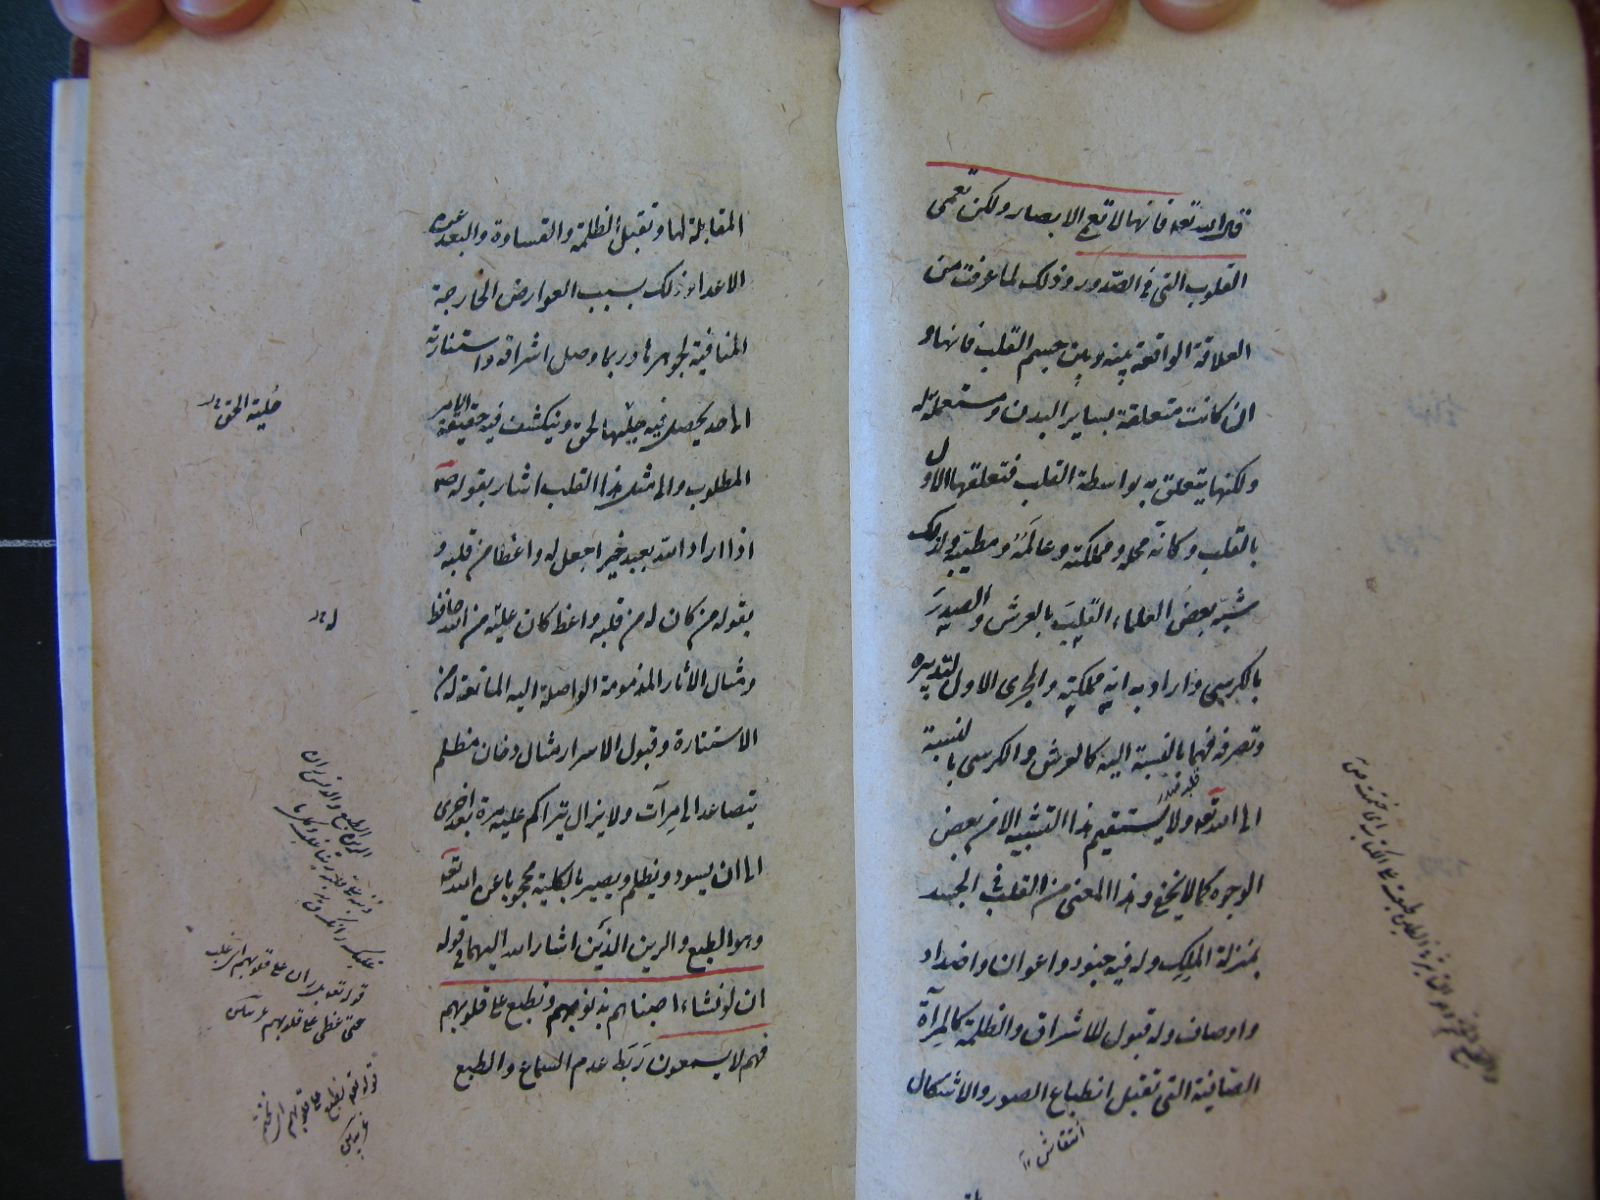 قال الله تعه فانها لا تعمى الابصار ولكن تعمى
القلوب التي في الصدور وذلك لما عرفت من
العلاقة الواقعة بينه وبين جسم القلب فانها و
ان كانت متعلقة بساير البدن ومستعملة له
ولكنها يتعلق به بواسطة القلب فتعلقها الاول
بالقلب وكانه محله ومملكته وعالمه ومطيته ولذلك
شبه بعض العلماء القلب بالعرش والصدر
بالكرسي واراد به انه مملكته والمجرى الاول لتدبيره
وتصرفه فهما بالنسبة اليه كالعرش والكرسي بالنسبة
الى الله تعه ولا يستقيم هذا التشبيه الا من بعض
الوجوه كما لا يخفى وهذا المعنى من القلب في الجسد
بمنزلة الملك وله فيه جنود واعوان واضداد
واوصاف وله قبول للاشراق والظلمة كالمرآة
الصافية التي تقبل انطباع الصور والاشكال
انتقاش
المقابلة لها وتقبل الظلمة والقساوة والبعد عن
الاعداد وذلك بسبب العوارض الخارجة
المنافية لجوهرها وربما وصل اشراقه واستنارته
الى حد يحصل فيه جلية الحق وينكشف فيه حقيقة الامر
المطلوب والى مثل هذا القلب اشار بقوله صم
اذا اراد الله بعبد خيرا جعل له واعظا من قلبه و
بقوله من كان له من قلبه واعظ كان عليه من الله حافظ
ومثال الآثار المذمومة الواصلة اليه المانعة له من
الاستنارة وقبول الاسرار مثال دخان مظلم
يتصاعد الى مرآت ولا يزال يتراكم عليه مرة بعد اخرى
الى ان يسود ويظلم ويصير بالكلية محجوبا عن الله تعه
وهو الطبع والرين الذين اشار الله اليهما في قوله
ان لو نشاء اصبناهم بذنوبهم ونطبع على قلوبهم
فهم لا يسمعون ربط عدم السماع والطبع
جلية الحق
له
قوله تعه بل ران على قلوبهم اى غلب
حتى غطى على قلوبهم
قوله تعه نطبع على قلوبهم اى نختم